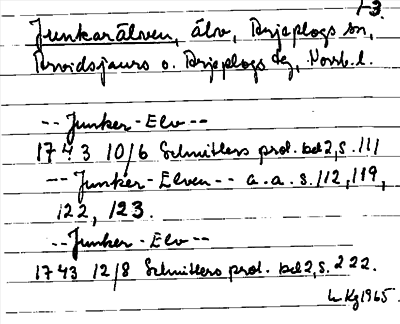 1-3.
Junkarälven, älv, Arjeplogs sn,
Arvidsjaurs o. Arjeplogs dg, Norrb. l.
-- Junker - Elv --
1743 10/6 Schnitlers prot. bd 2, s. 111
-- Junker - Elven -- a.a. s. 112, 119,
122, 123.
-- Junker - Elv --
1743 12/8 Schnitlers prot. bd 2, s. 222.
1965